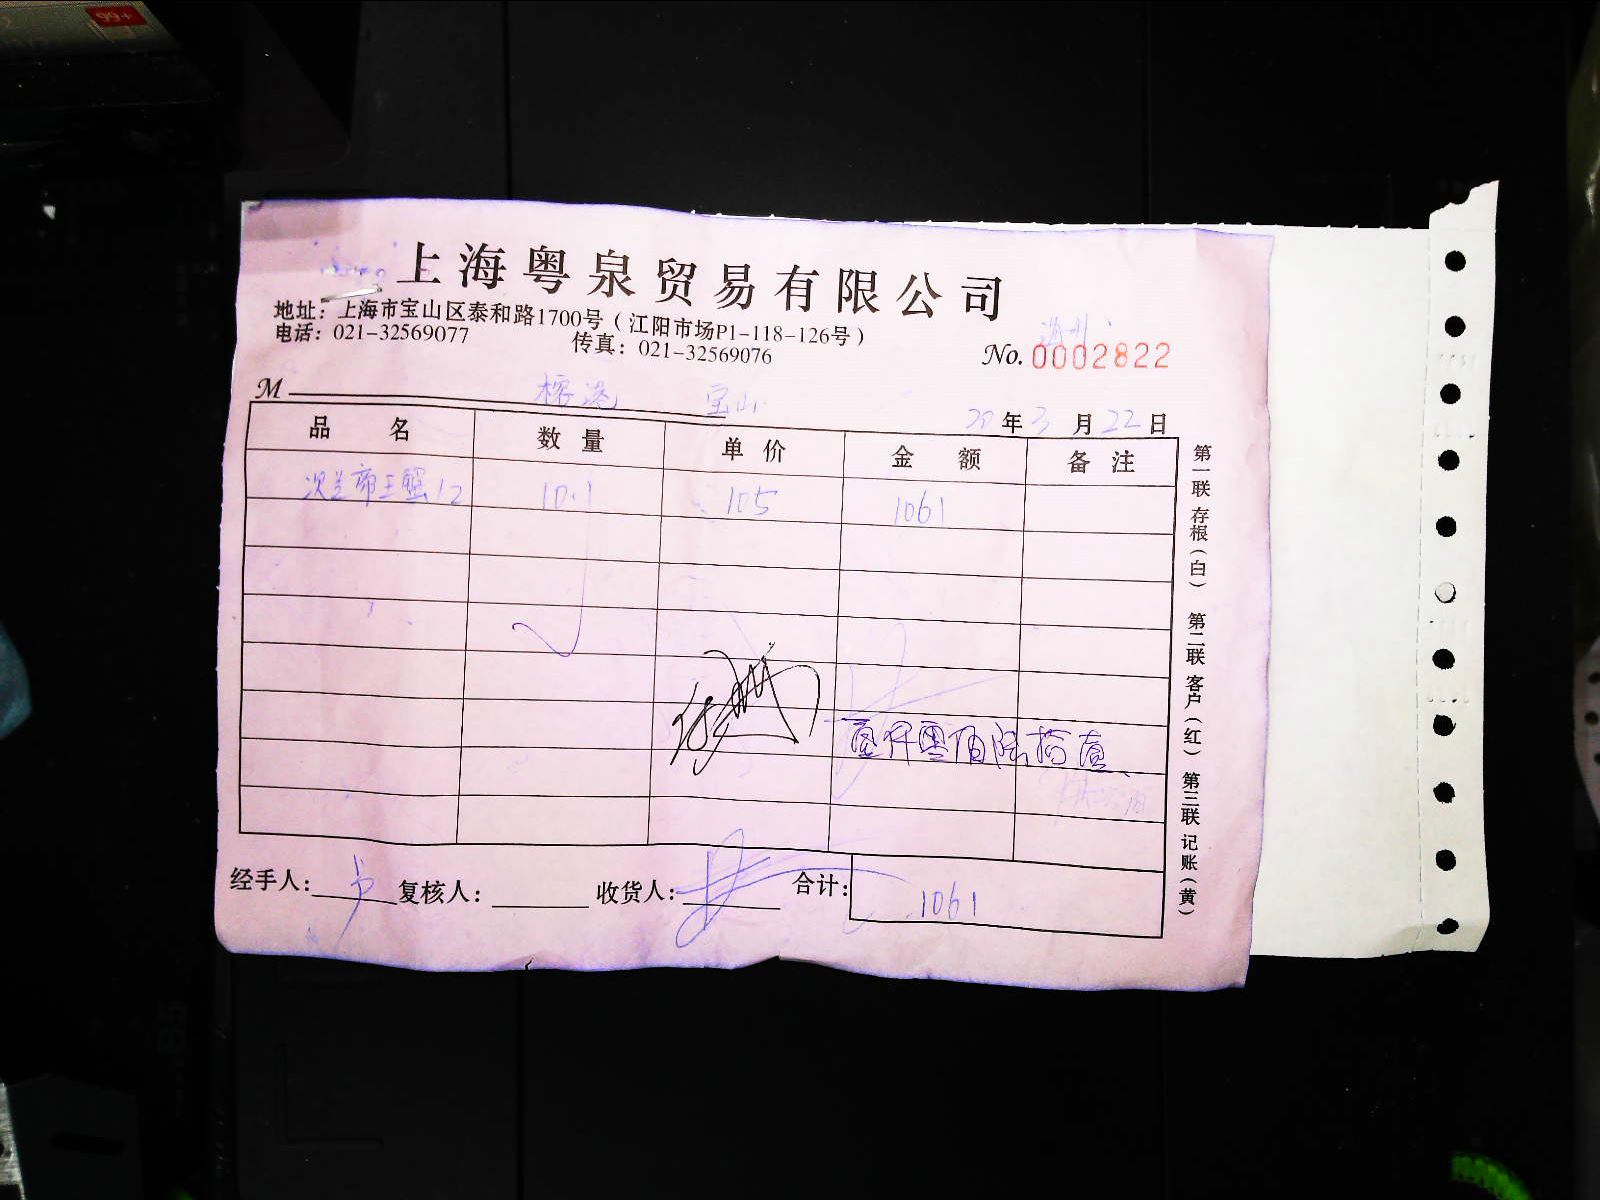 99+
上海粤泉贸易有限公司
地址：上海市宝山区泰和路1700号（江阳市场P1-118-126号）
电话：021-32569077 传真：021-32569076
No. 0002822
M 榕港 宝山
20年3月22日
品名 数量 单价 金额 备注
次兰帝王蟹12 10.1 105 1061
壹仟零佰陆拾壹
经手人： 复核人： 收货人： 合计：1061
第一联存根（白） 第二联客户（红） 第三联记账（黄）